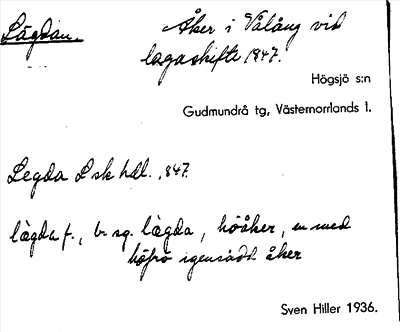 Lägdan.
Åker i Välång vid
lagaskifte 1847.
Högsjö s:n
Gudmundrå tg, Västernorrlands l.
Legda L sk hdl. 1847.
lägda f., b. sg. lägda, höåker, en med
höfrö igensådd åker
Sven Hiller 1936.